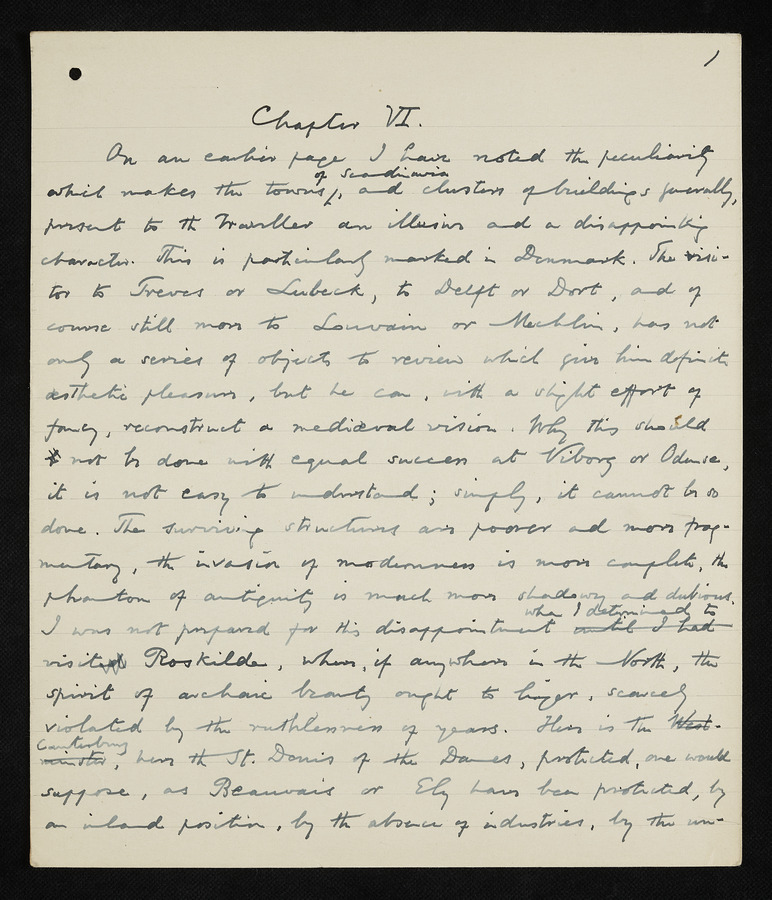 1
Chapter VI.
On an earlier page I have noted the peculiarity
which makes the towns of Scandinavia, and clusters of buildings generally,
present to the traveller an illusive and a disappointing
character. This is particularly marked in Denmark. The visi-
tor to Treves or Lubeck, to Delft or Dort, and of
course still more to Louvain or Mechlin, has not
only a series of objects to review which give him definite
æsthetic pleasure, but he can, with a slight effort of
fancy, reconstruct a mediæval vision. Why this should
not be done with equal success at Viborg or Odense,
it is not easy to understand; simply, it cannot be so
done. The surviving structures are poorer and more frag-
mentary, the invasion of modernness is more complete, the
phantom of antiquity is much more shadowy and dubious.
I was not prepared for this disappointment until I had when I determined to
visit Roskilde, where, if anywhere in the North, the
spirit of archaic beauty ought to linger, scarcely
violated by the ruthlessness of years. Here is the West-
minster Canterbury, here the St. Denis of the Danes, protected, one would
suppose, as Beauvais or Ely have been protected, by
an inland position, by the absence of industries, by the un-